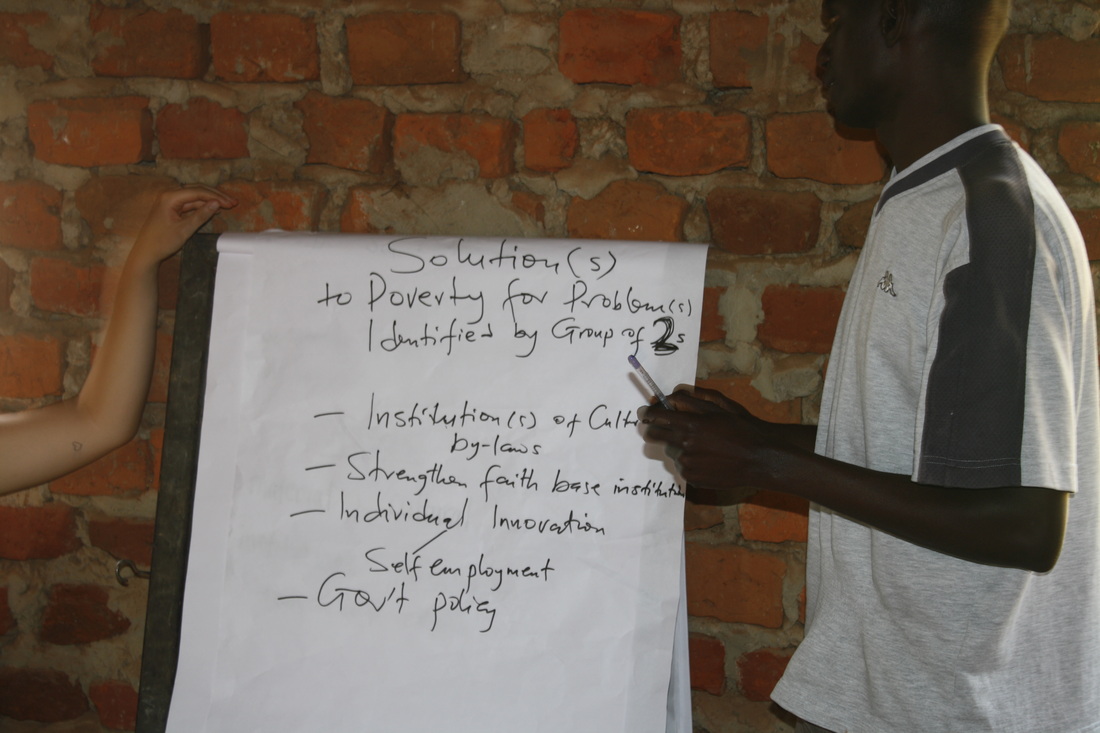 Solution(s)
to Poverty for Problem(s)
Identified by Group of 2s
– Institution(s) of
by-laws
– Strengthen faith base
– Individual Innovation
Self employment
– Gov't policy